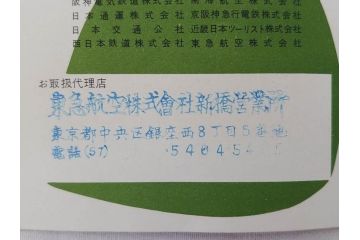 阪神電気鉄道株式会社 南海航空株式会社
日本通運株式会社 京阪神急行電鉄株式会社
日本交通公社 近畿日本ツーリスト株式会社
西日本鉄道株式会社 東急航空株式会社
お取扱代理店
東急航空株式會社新橋営業所
東京都中央区銀座西8丁目5番地
電話(57)